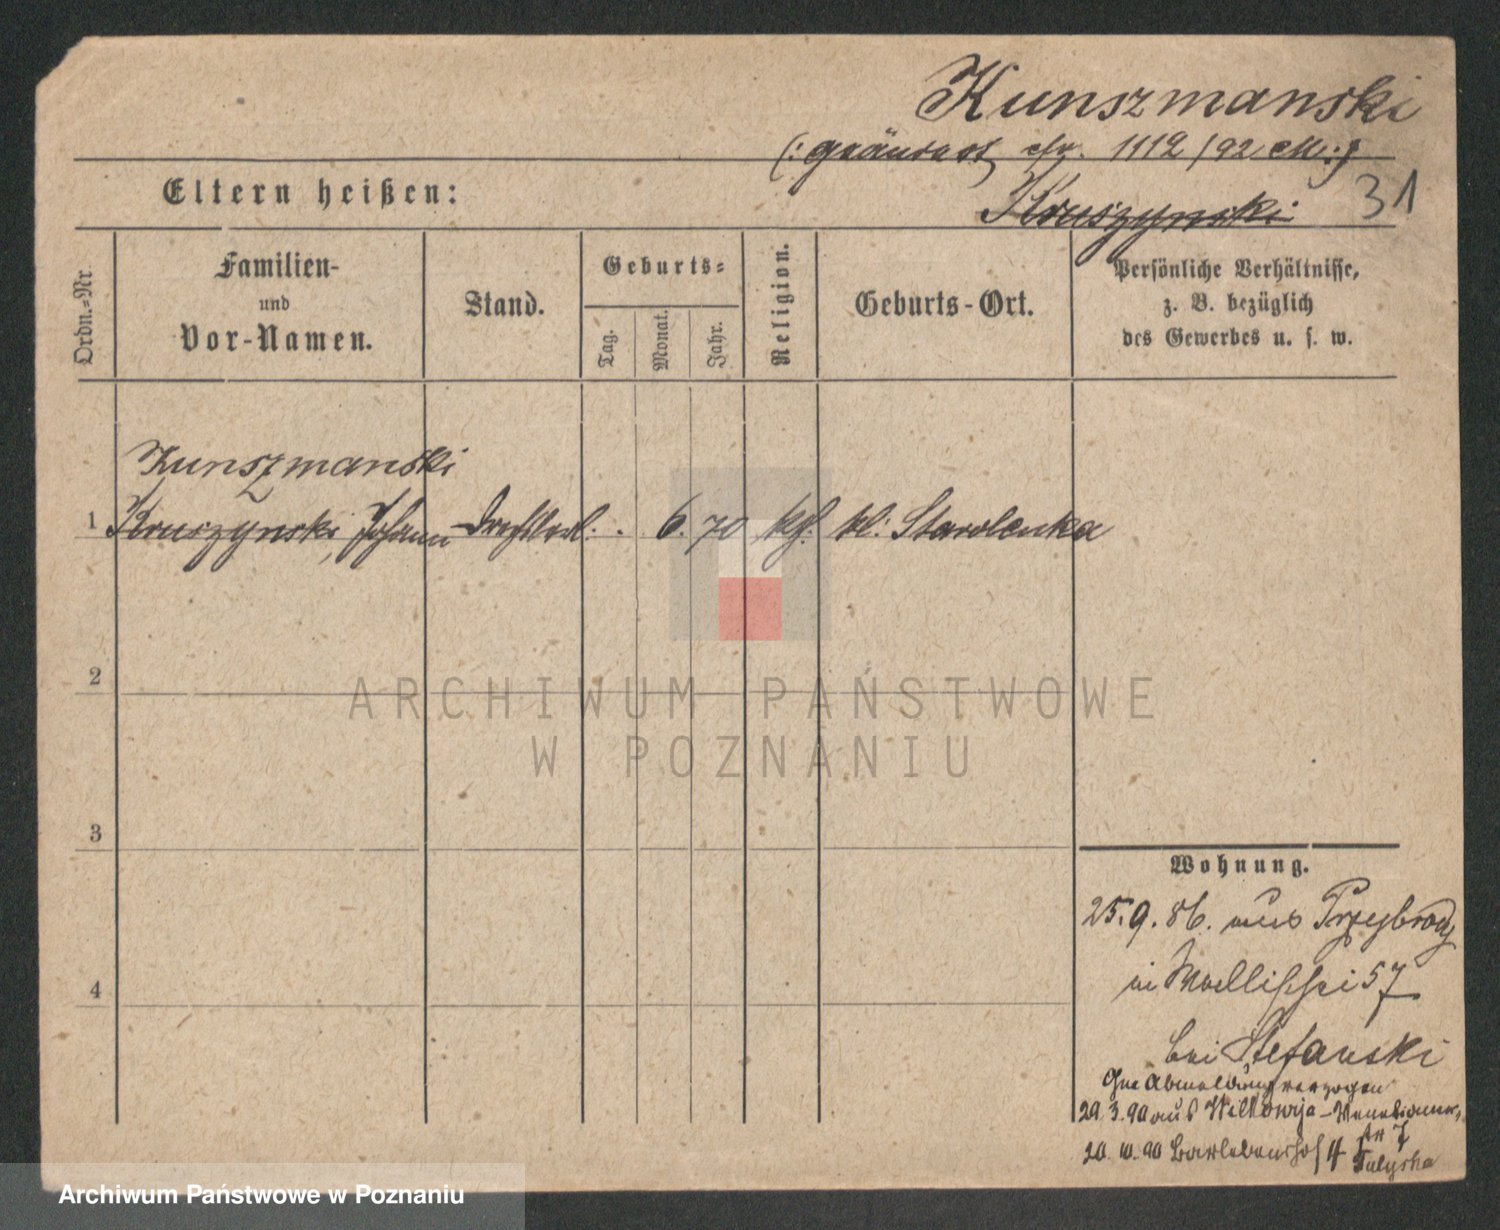 Kunszmanski
(: geändert cfr. 1112/92 M :)
Eltern heißen:
Kruszynski
31
Ordn.-Nr
Familien-
und
Vor-Namen.
Stand.
Geburts-
Tag.
Monat.
Jahr.
Religion.
Geburts-Ort.
Persönliche Verhältnisse,
z. B. bezüglich
des Gewerbes u. s. w.
Kunszmanski
1 Kruszynski, Johann Drechslerl. . 6. 70 kth. kl: Starolenka
2
ARCHIWUM PAŃSTWOWE
W POZNANIU
3
Wohnung.
25. 9. 86. aus Przybrody
in Wallischei 57
bei Stefanski
Ohne Abmeldung verzogen
29. 3. 90 aus Wilkowija - Venetianer
str 7
20. 10. 90 Barlebenshof 4
4
Archiwum Państwowe w Poznaniu